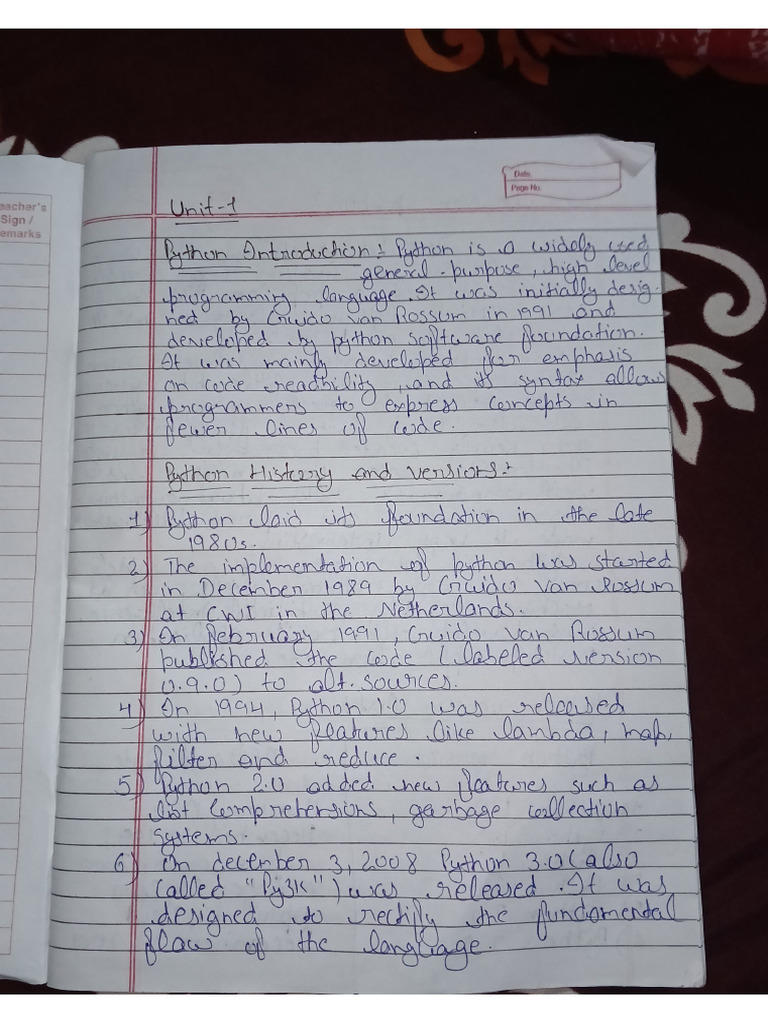 eacher's
Sign /
emarks
Date
Page No.
Unit-1
Python Introduction:- Python is a widely used
general-purpose, high level
programming language. It was initially desig-
ned by Guido van Rossum in 1991 and
developed by python software foundation.
It was mainly developed for emphasis
on code readbility, and its syntax allows
programmers to express concepts in
fewer lines of code.
Python History and versions:-
1) Python laid its foundation in the late
1980s.
2) The implementation of python was started
in December 1989 by Guido Van Rossum
at CWI in the Netherlands.
3) On February 1991, Guido van Rossum
published the code (labeled version
0.9.0) to alt.sources.
4) In 1994, Python 1.0 was released
with new features like lambda, map,
filter and reduce.
5) Python 2.0 added new features such as
list comprehensions, garbage collection
systems.
6) On december 3, 2008 Python 3.0 (also
called "Py3K") was released. It was
designed to rectify the fundamental
flaw of the language.